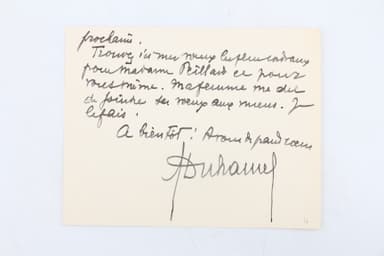 prochain.
Trouvez ici mes voeux les plus cordiaux
pour madame Peillard et pour
vous même. Ma femme me dit
de joindre ses voeux aux miens. Je
le fais.
A bientôt! A vous de grand coeur
GDuhamel